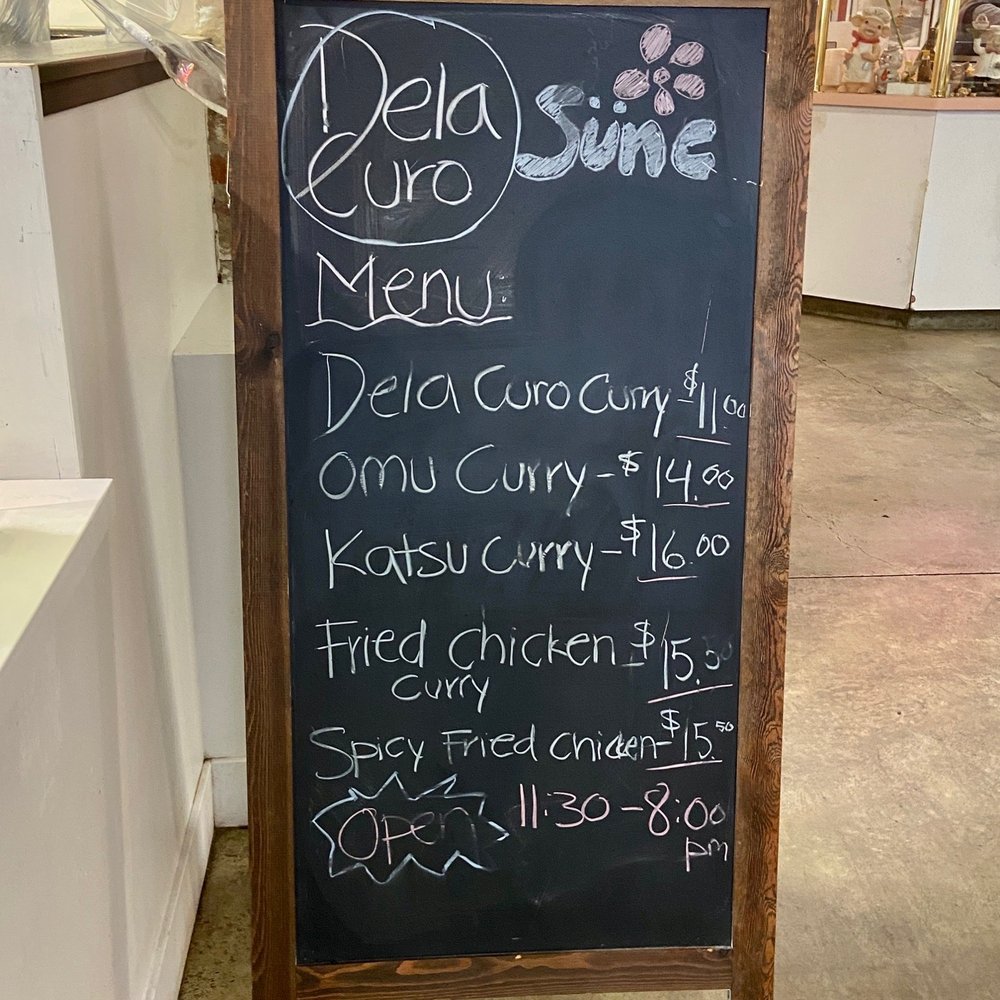 Dela
Curo
Süne
Menu
Dela Curo Curry - $11.00
Omu Curry - $14.00
Katsu Curry - $16.00
Fried Chicken - $15.50
Curry
Spicy Fried Chicken - $15.50
Open 11:30 - 8:00
pm